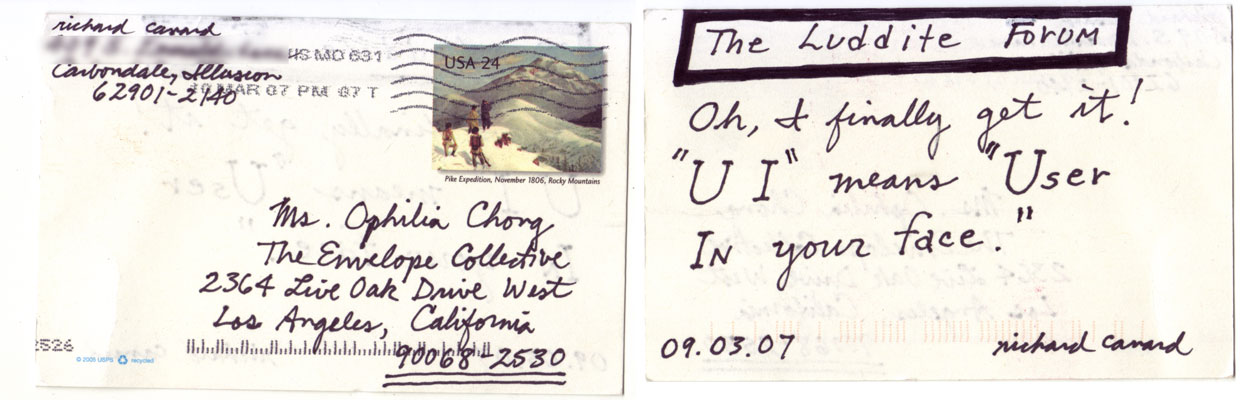 richard canard
Carbondale, Illusion
62901-2140
US MO 631
MAR 07 PM 07 T
USA 24
Pike Expedition, November 1806, Rocky Mountains
Ms. Ophilia Chong
The Envelope Collective
2364 Live Oak Drive West
Los Angeles, California
90068-2530
2526
© 2005 USPS recycled
The Luddite Forum
Oh, I finally get it!
"U I" means "User
In your face."
09.03.07 richard canard